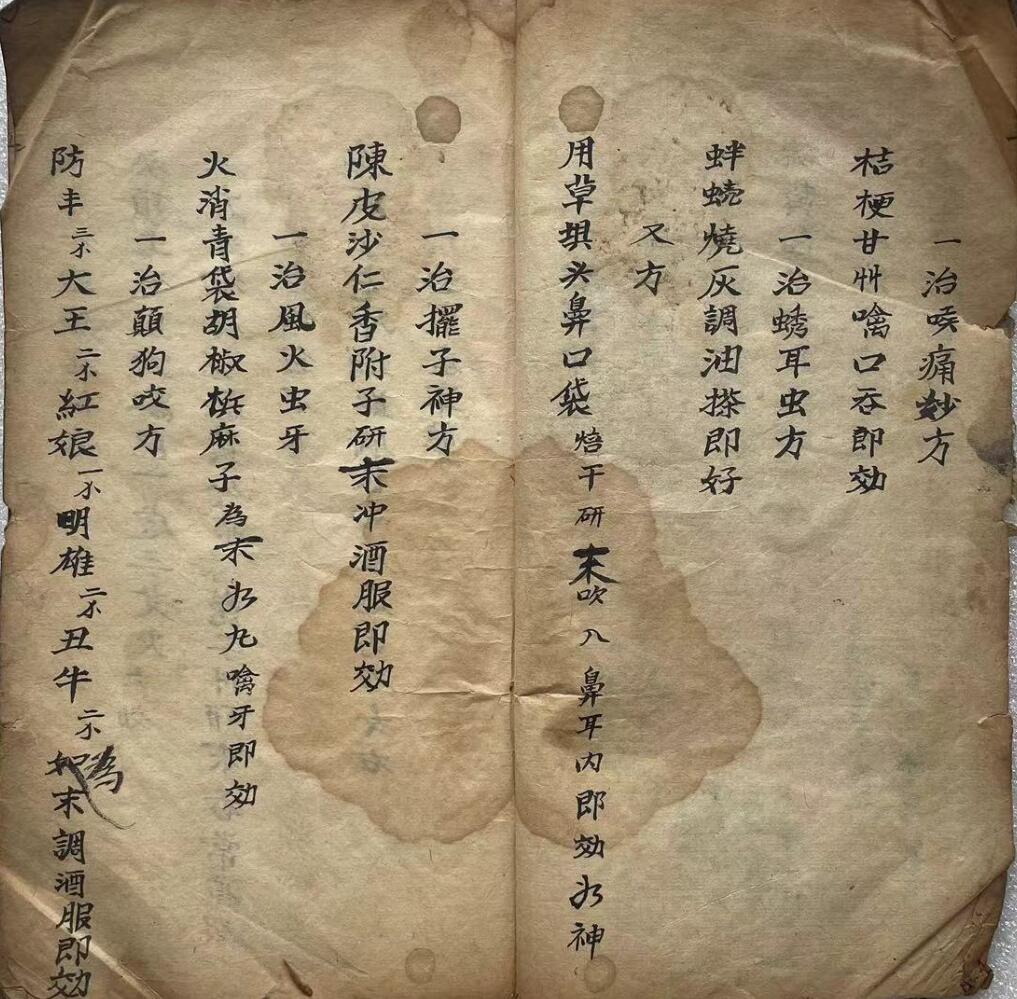 一治喉痛妙方
桔梗甘艸噙口吞即効
一治蜏耳虫方
蚌蟯燒灰調油搽即好
又方
用草埧头鼻口袋焙干研末吹入鼻耳内即効如神
一治擺子神方
陳皮沙仁香附子研末冲酒服即効
一治風火虫牙
火消青袋胡椒梹麻子為末如丸噙牙即効
一治顛狗咬方
防丰三不大王二不紅娘一不明雄二不丑牛二不為末調酒服即効